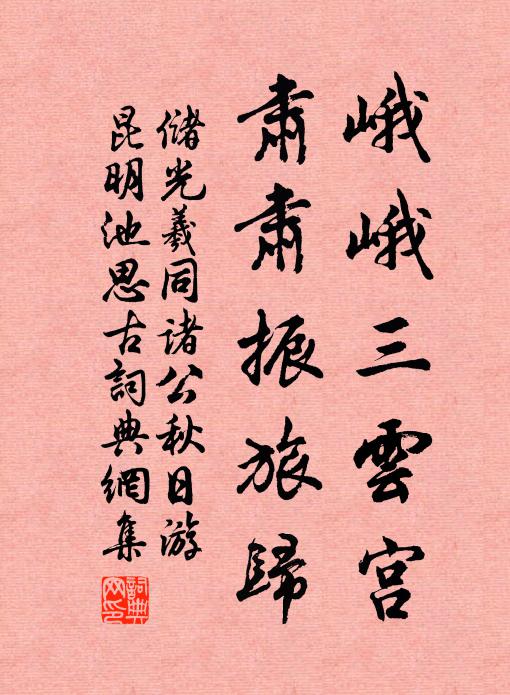 峨峨三雲宮
肅肅振旅歸
儲光羲同諸公秋日游
昆明池思古詞典網集
詞典
网印